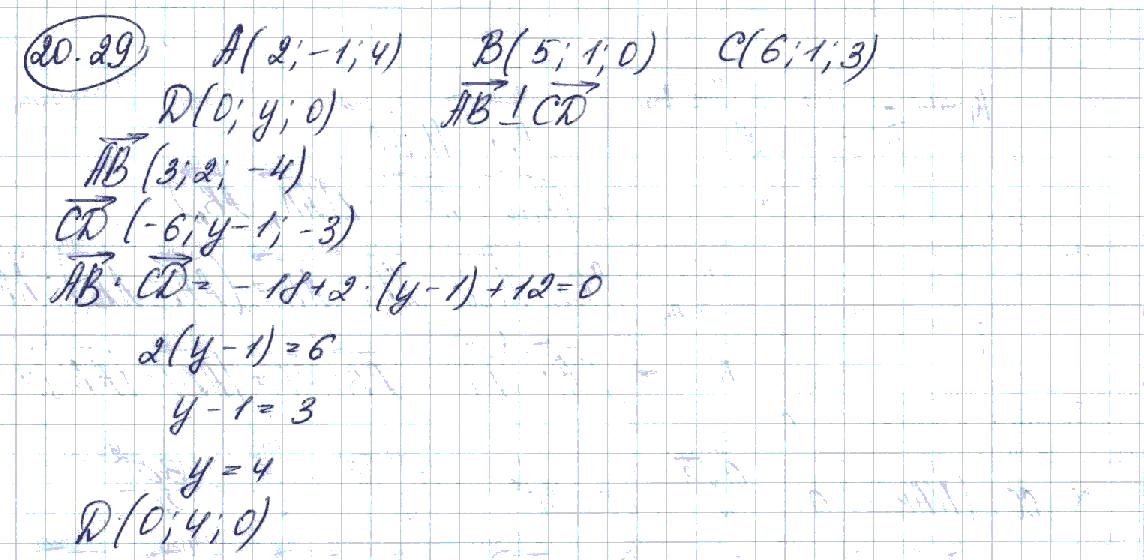 20.29 A(2; -1; 4) B(5; 1; 0) C(6; 1; 3)
D(0; y; 0) AB⃗ ⊥ CD⃗
AB⃗ (3; 2; -4)
CD⃗ (-6; y-1; -3)
AB⃗ · CD⃗ = -18+2·(y-1)+12=0
2(y-1)=6
y-1=3
y=4
D(0; 4; 0)